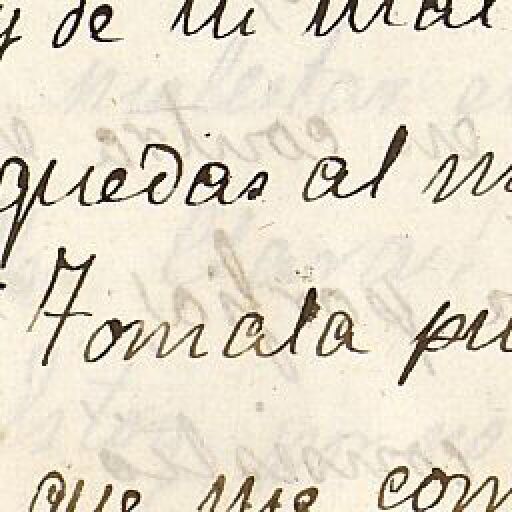 y de tu mal
quedas al m
Tomala pu
que me com